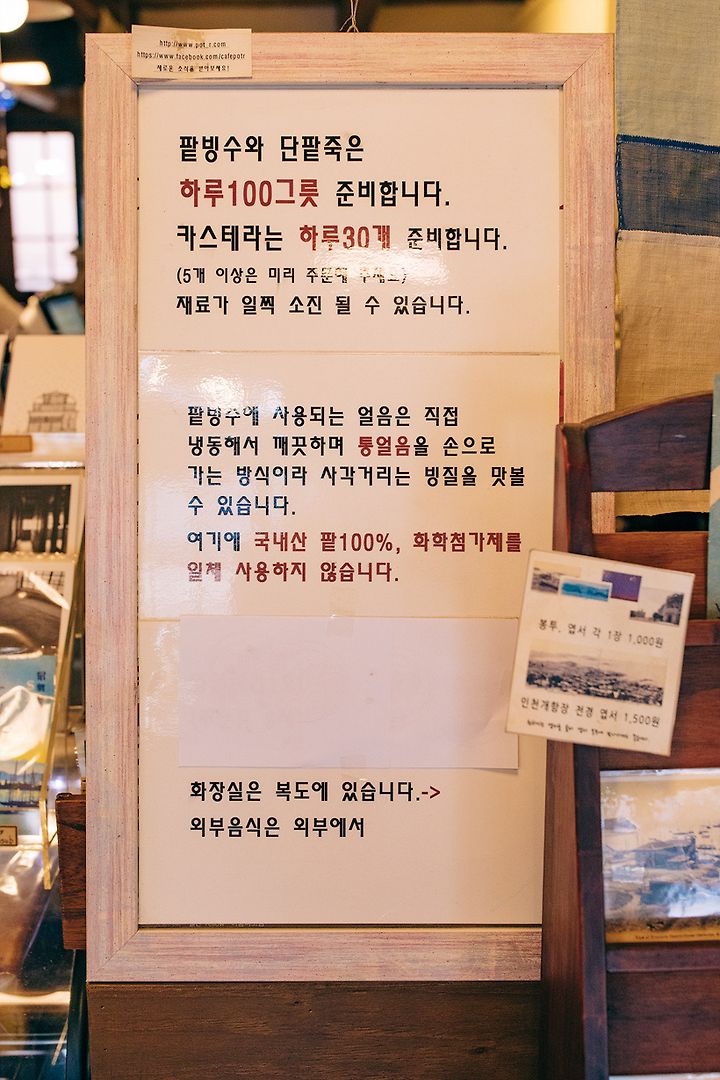 http://www.pot_r.com
https://www.facebook.com/cafepotr
새로운 소식을 받아보세요!
팥빙수와 단팥죽은
하루100그릇 준비합니다.
카스테라는 하루30개 준비합니다.
(5개 이상은 미리 주문해 주세요)
재료가 일찍 소진 될 수 있습니다.
팥빙수에 사용되는 얼음은 직접
냉동해서 깨끗하며 통얼음을 손으로
가는 방식이라 사각거리는 빙질을 맛볼
수 있습니다.
여기에 국내산 팥100%, 화학첨가제를
일체 사용하지 않습니다.
화장실은 복도에 있습니다.->
외부음식은 외부에서
봉투, 엽서 각 1장 1,000원
인천개항장 전경 엽서 1,500원